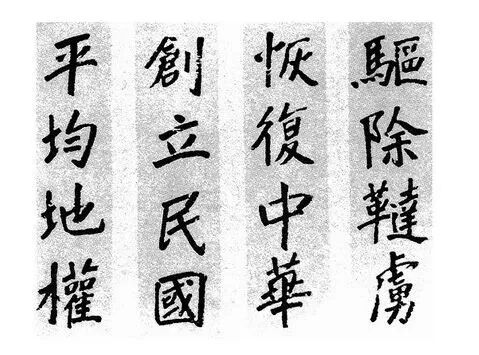 驅除韃虜
恢復中華
創立民國
平均地權